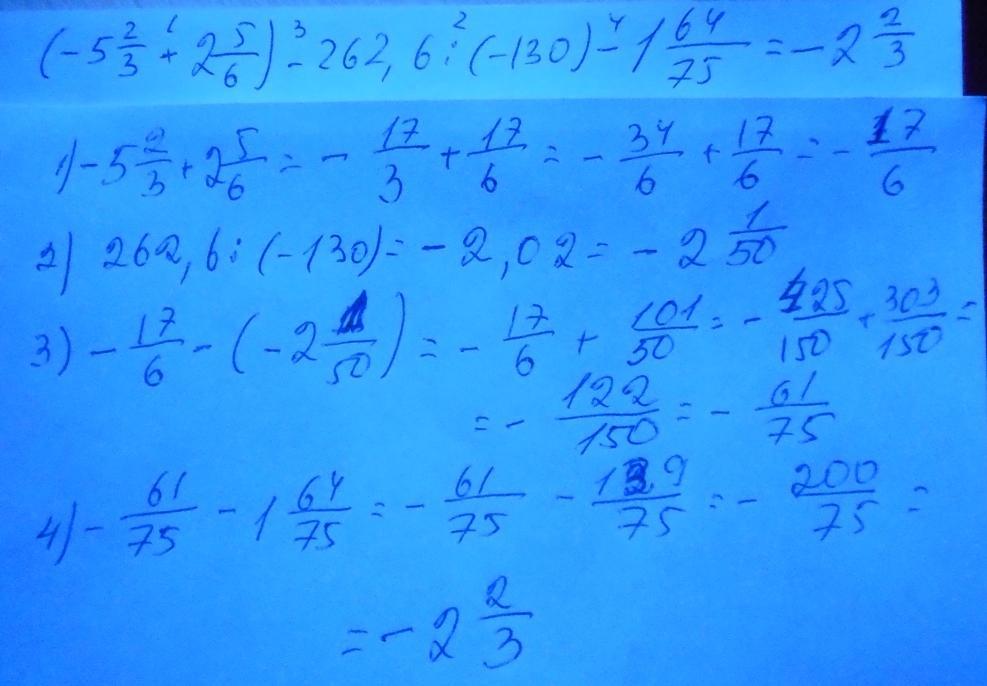 (-5 2/3 + 2 5/6) - 262,6 : (-130) - 1 64/75 = -2 2/3
1) -5 2/3 + 2 5/6 = - 17/3 + 17/6 = - 34/6 + 17/6 = - 17/6
2) 262,6 : (-130) = -2,02 = -2 1/50
3) - 17/6 - (-2 1/50) = - 17/6 + 101/50 = - 425/150 + 303/150 =
= - 122/150 = - 61/75
4) - 61/75 - 1 64/75 = - 61/75 - 139/75 = - 200/75 =
= -2 2/3